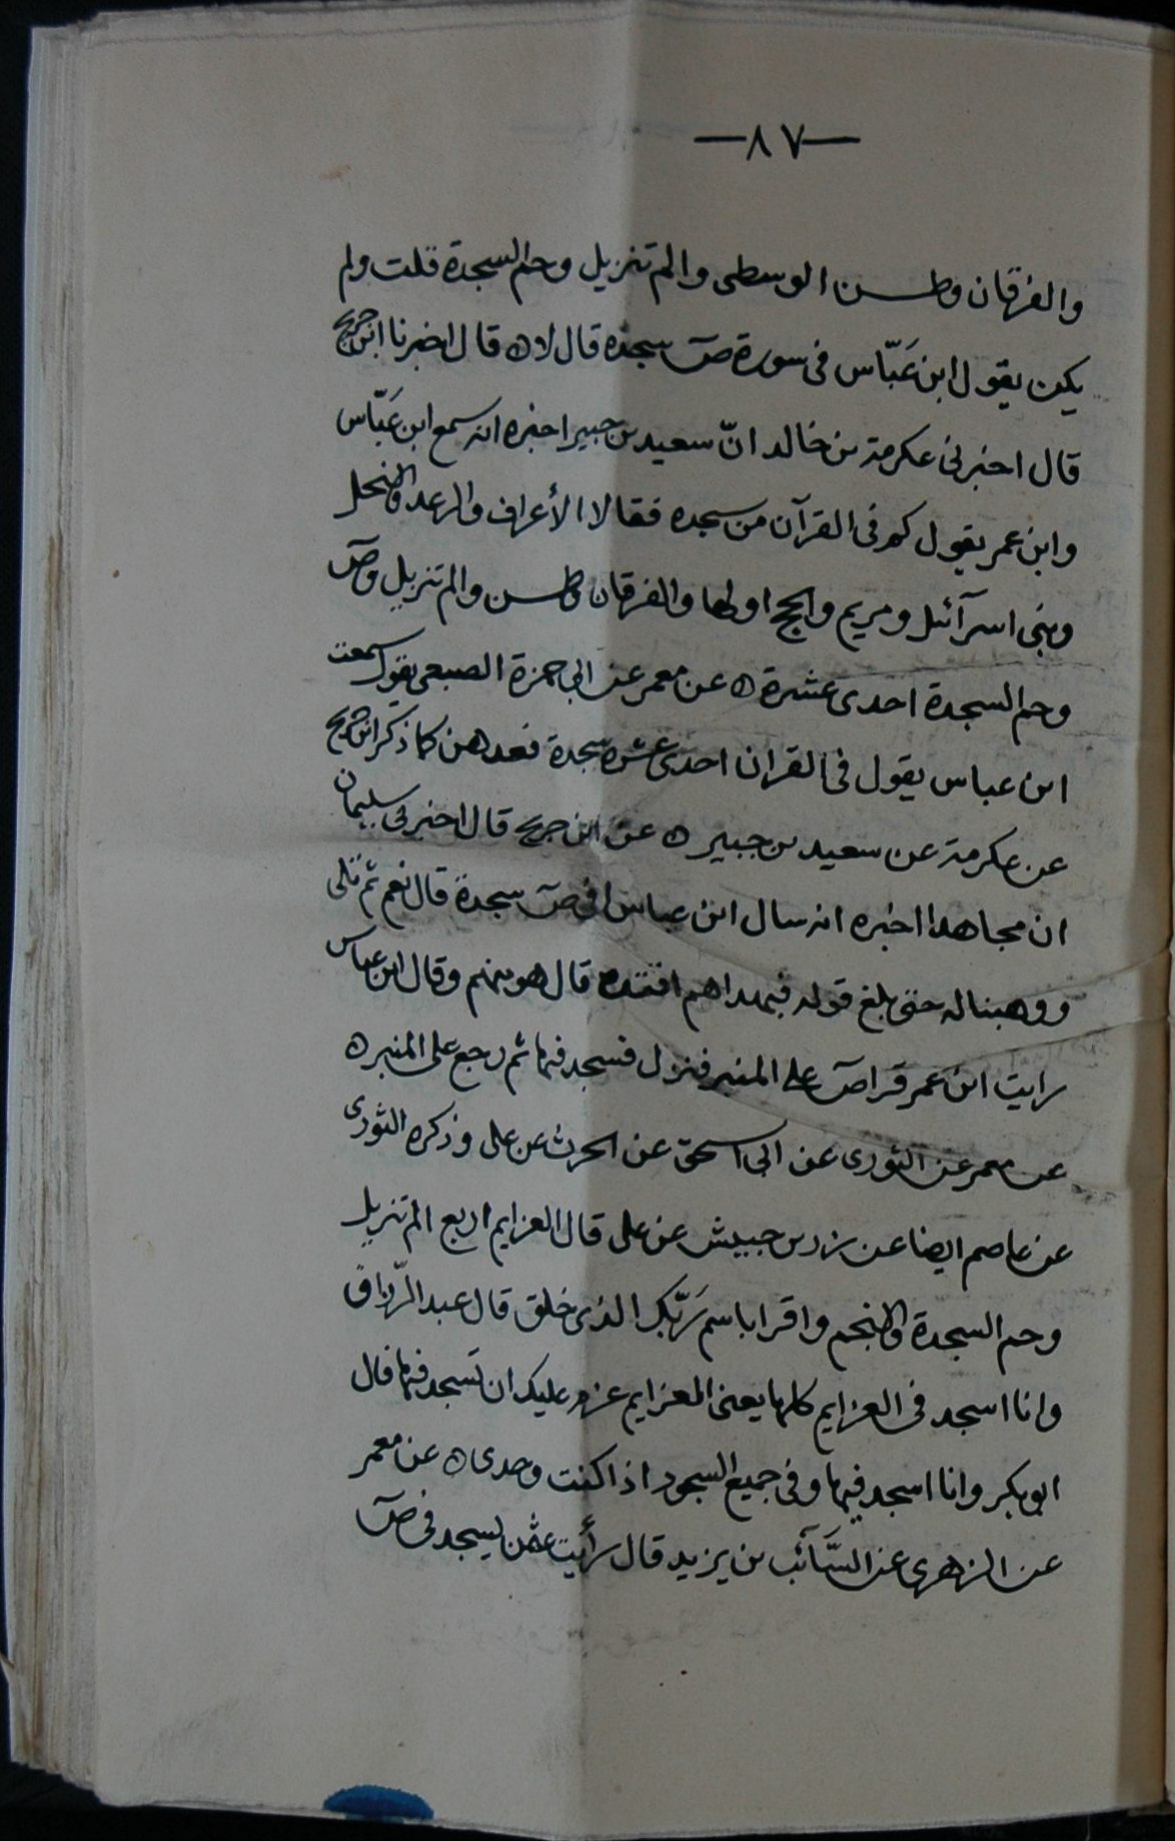 —٨٧—
والفرقان وطس الوسطى والم تنزيل وحم السجدة قلت ولم
يكن يقول ابن عَبّاس فى سورة صۤ سجده قال لا ه قال اخبرنا ابن جريج
قال اخبرنى عكرمة بن خالد انّ سعيد بن جبير اخبره انه سمع ابن عَبّاس
وابن عمر يقول كم فى القرآن من سجده فقالا الأعراف والرعد والنحل
وبنى اسرآئيل ومريم والحج اولها والفرقان وطس والم تنزيل وصۤ
وحم السجدة احدى عشرة ه عن معمر عن ابى حمزة الضبعى يقول سمعت
ابن عباس يقول فى القران احدى عشره سجدة فعدهن كما ذكر ابن جريج
عن عكرمة عن سعيد بن جبير ه عن ابن جريج قال اخبرنى سليمان
ان مجاهدا اخبره انه سال ابن عباس افى صۤ سجدة قال نعم ثم تلى
ووهبنا له حتى بلغ قوله فبهداهم اقتده قال هو منهم وقال ابن عباس
رايت ابن عمر قرا صۤ على المنبر فنزل فسجد فيها ثم رجع على المنبر ه
عن معمر عن الثورى عن ابى اسحق عن الحرث عن على وذكره الثورى
عن عاصم ايضا عن زر بن حبيش عن على قال العزايم اربع الم تنزيل
وحم السجدة والنجم واقرا باسم رَبّك الذى خلق قال عبد الرّزاق
وانا اسجد فى العزايم كلها يعنى العزايم عزم عليك ان تسجد فيها قال
ابو بكر وانا اسجد فيها وفى جميع السجود اذا كنت وحدى ه عن معمر
عن الزهرى عن السَّائب بن يزيد قال رأيت عثمن يسجد فى صۤ